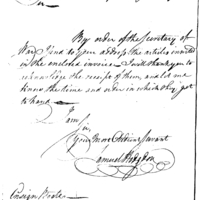 Sir
By order of the Secretary of
War I send to your address the articles invoiced
in the enclosed invoice. I will thank you to
acknowledge the receipt of them, and let me
know the time and order in which they got
to hand
I am
Sir,
Your Most Obdient Servant
Samuel Hodgdon
Ensign